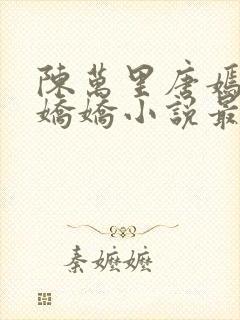 陳萬里唐嫣
嬌嬌小說最
秦嬤嬤